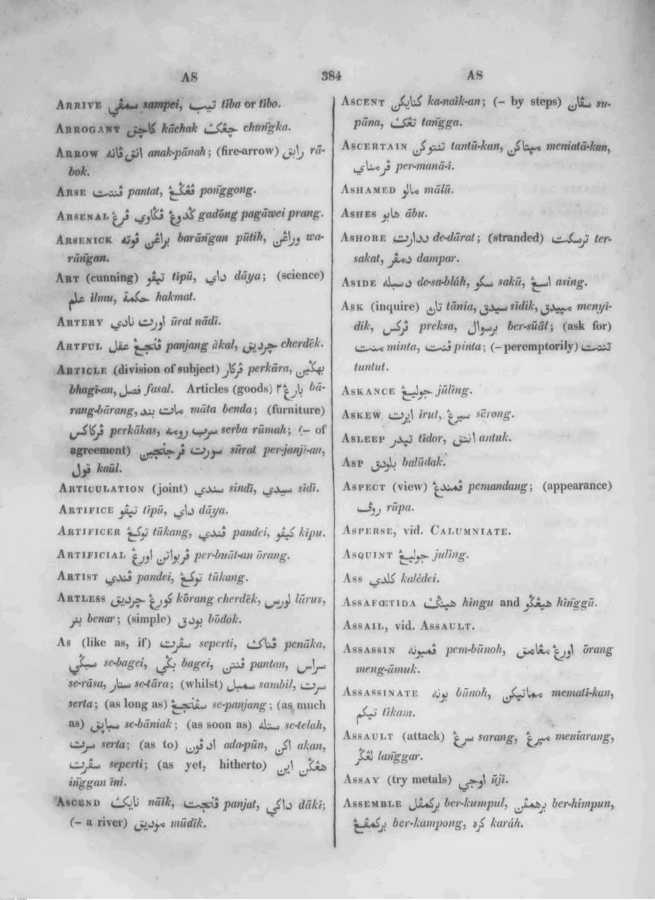 AS 384 AS
ARRIVE سمڤي sampei, تيب tība or tībo.
ARROGANT كاچق kāchak چڠكت chongka.
ARROW انق ڤانه anak-pānah; (fire-arrow) رابق rā-
bok.
ARSE ڤنتت pantat, ڤڠڬڠ ponggong.
ARSENAL ڬدوڠ ڤڬاوي ڤرڠ gadōng pagāwei prang.
ARSENICK براڠن ڤوته barāngan pūtih, وراڠن wa-
rāngan.
ART (cunning) تيڤو tīpū, داي dāya; (science)
علم ilmu, حكمة hakmat.
ARTERY اورت نادي ūrat nādī.
ARTFUL ڤنجڠ عقل panjang ākal, چرديق cherdēk.
ARTICLE (division of subject) ڤركار perkāra, بهڬين
bhagī-an, فصل fasal. Articles (goods) بارڠ٢ bā-
rang-bārang, مات بند māta benda; (furniture)
ڤركاكس perkākas, سرب رومه serba rūmah; (– of
agreement) سورت ڤرجنجين sūrat per-janjī-an,
قول kaūl.
ARTICULATION (joint) سندي sindī, سيدي sīdī.
ARTIFICE تيڤو tīpū, داي dāya.
ARTIFICER توكڠ tūkang, ڤندي pandei, كيڤو kīpu.
ARTIFICIAL ڤربواتن اورڠ per-buāt-an ōrang.
ARTIST ڤندي pandei, توكڠ tūkang.
ARTLESS كورڠ چرديق kōrang cherdēk, لورس lūrus,
بنر benar; (simple) بودق būdok.
AS (like as, if) سڤرت seperti, ڤناك penāka,
سبڬي se-bagei, بڬي bagei, ڤنتن pantan, سراس
se-rāsa, ستار se-tāra; (whilst) سمبل sambil, سرت
serta; (as long as) سڤنجڠ se-panjang; (as much
as) سباڽق se-bāniak; (as soon as) ستله se-telah,
سرت serta; (as to) اد ڤون ada-pūn, اكن akan,
سڤرت seperti; (as yet, hitherto) هڠڬن اين
inggan īni.
ASCEND نايك nāīk, ڤنجت panjat, داكي dākī;
(– a river) موديق mūdīk.
ASCENT كنايكن ka-naīk-an; (– by steps) سڤان su-
pāna, تڠك tangga.
ASCERTAIN تنتوكن tantū-kan, مڽتاكن meniatā-kan,
ڤرمناي per-manā-i.
ASHAMED مالو mālū.
ASHES هابو ābu.
ASHORE ددارت de-dārat; (stranded) ترسكت ter-
sakat, دمڤر dampar.
ASIDE دسبله de-sa-blāh, سكو sakū, اسڠ asing.
ASK (inquire) تان tānia, سيدق sīdik, مڽيدق menyī-
dik, ڤركس preksa, برسوال ber-sūāl; (ask for)
منت minta, ڤنت pinta; (– peremptorily) تنتت
tuntut.
ASKANCE جوليڠ jūling.
ASKEW ايرت īrut, سيرڠ sērong.
ASLEEP تيدر tīdor, انتق antuk.
ASP بلودق balūdak.
ASPECT (view) ڤمندڠ pemandang; (appearance)
روڤ rūpa.
ASPERSE, vid. CALUMNIATE.
ASQUINT جوليڠ juling.
ASS كلدي kalēdei.
ASSAFŒTIDA هيڠك hingu and هيڠڬو hinggū.
ASSAIL, vid. ASSAULT.
ASSASSIN ڤمبونه pem-būnoh, اورڠ مڠامق ōrang
meng-āmuk.
ASSASSINATE بونه būnoh, مماتيكن memati-kan,
تيكم tīkam.
ASSAULT (attack) سرڠ sarang, مڽرڠ meniarang,
لڠڬر langgar.
ASSAY (try metals) اوجي ūjī.
ASSEMBLE بركمڤل ber-kumpul, برهمڤن ber-himpun,
بركمڤڠ ber-kampong, كره karáh.